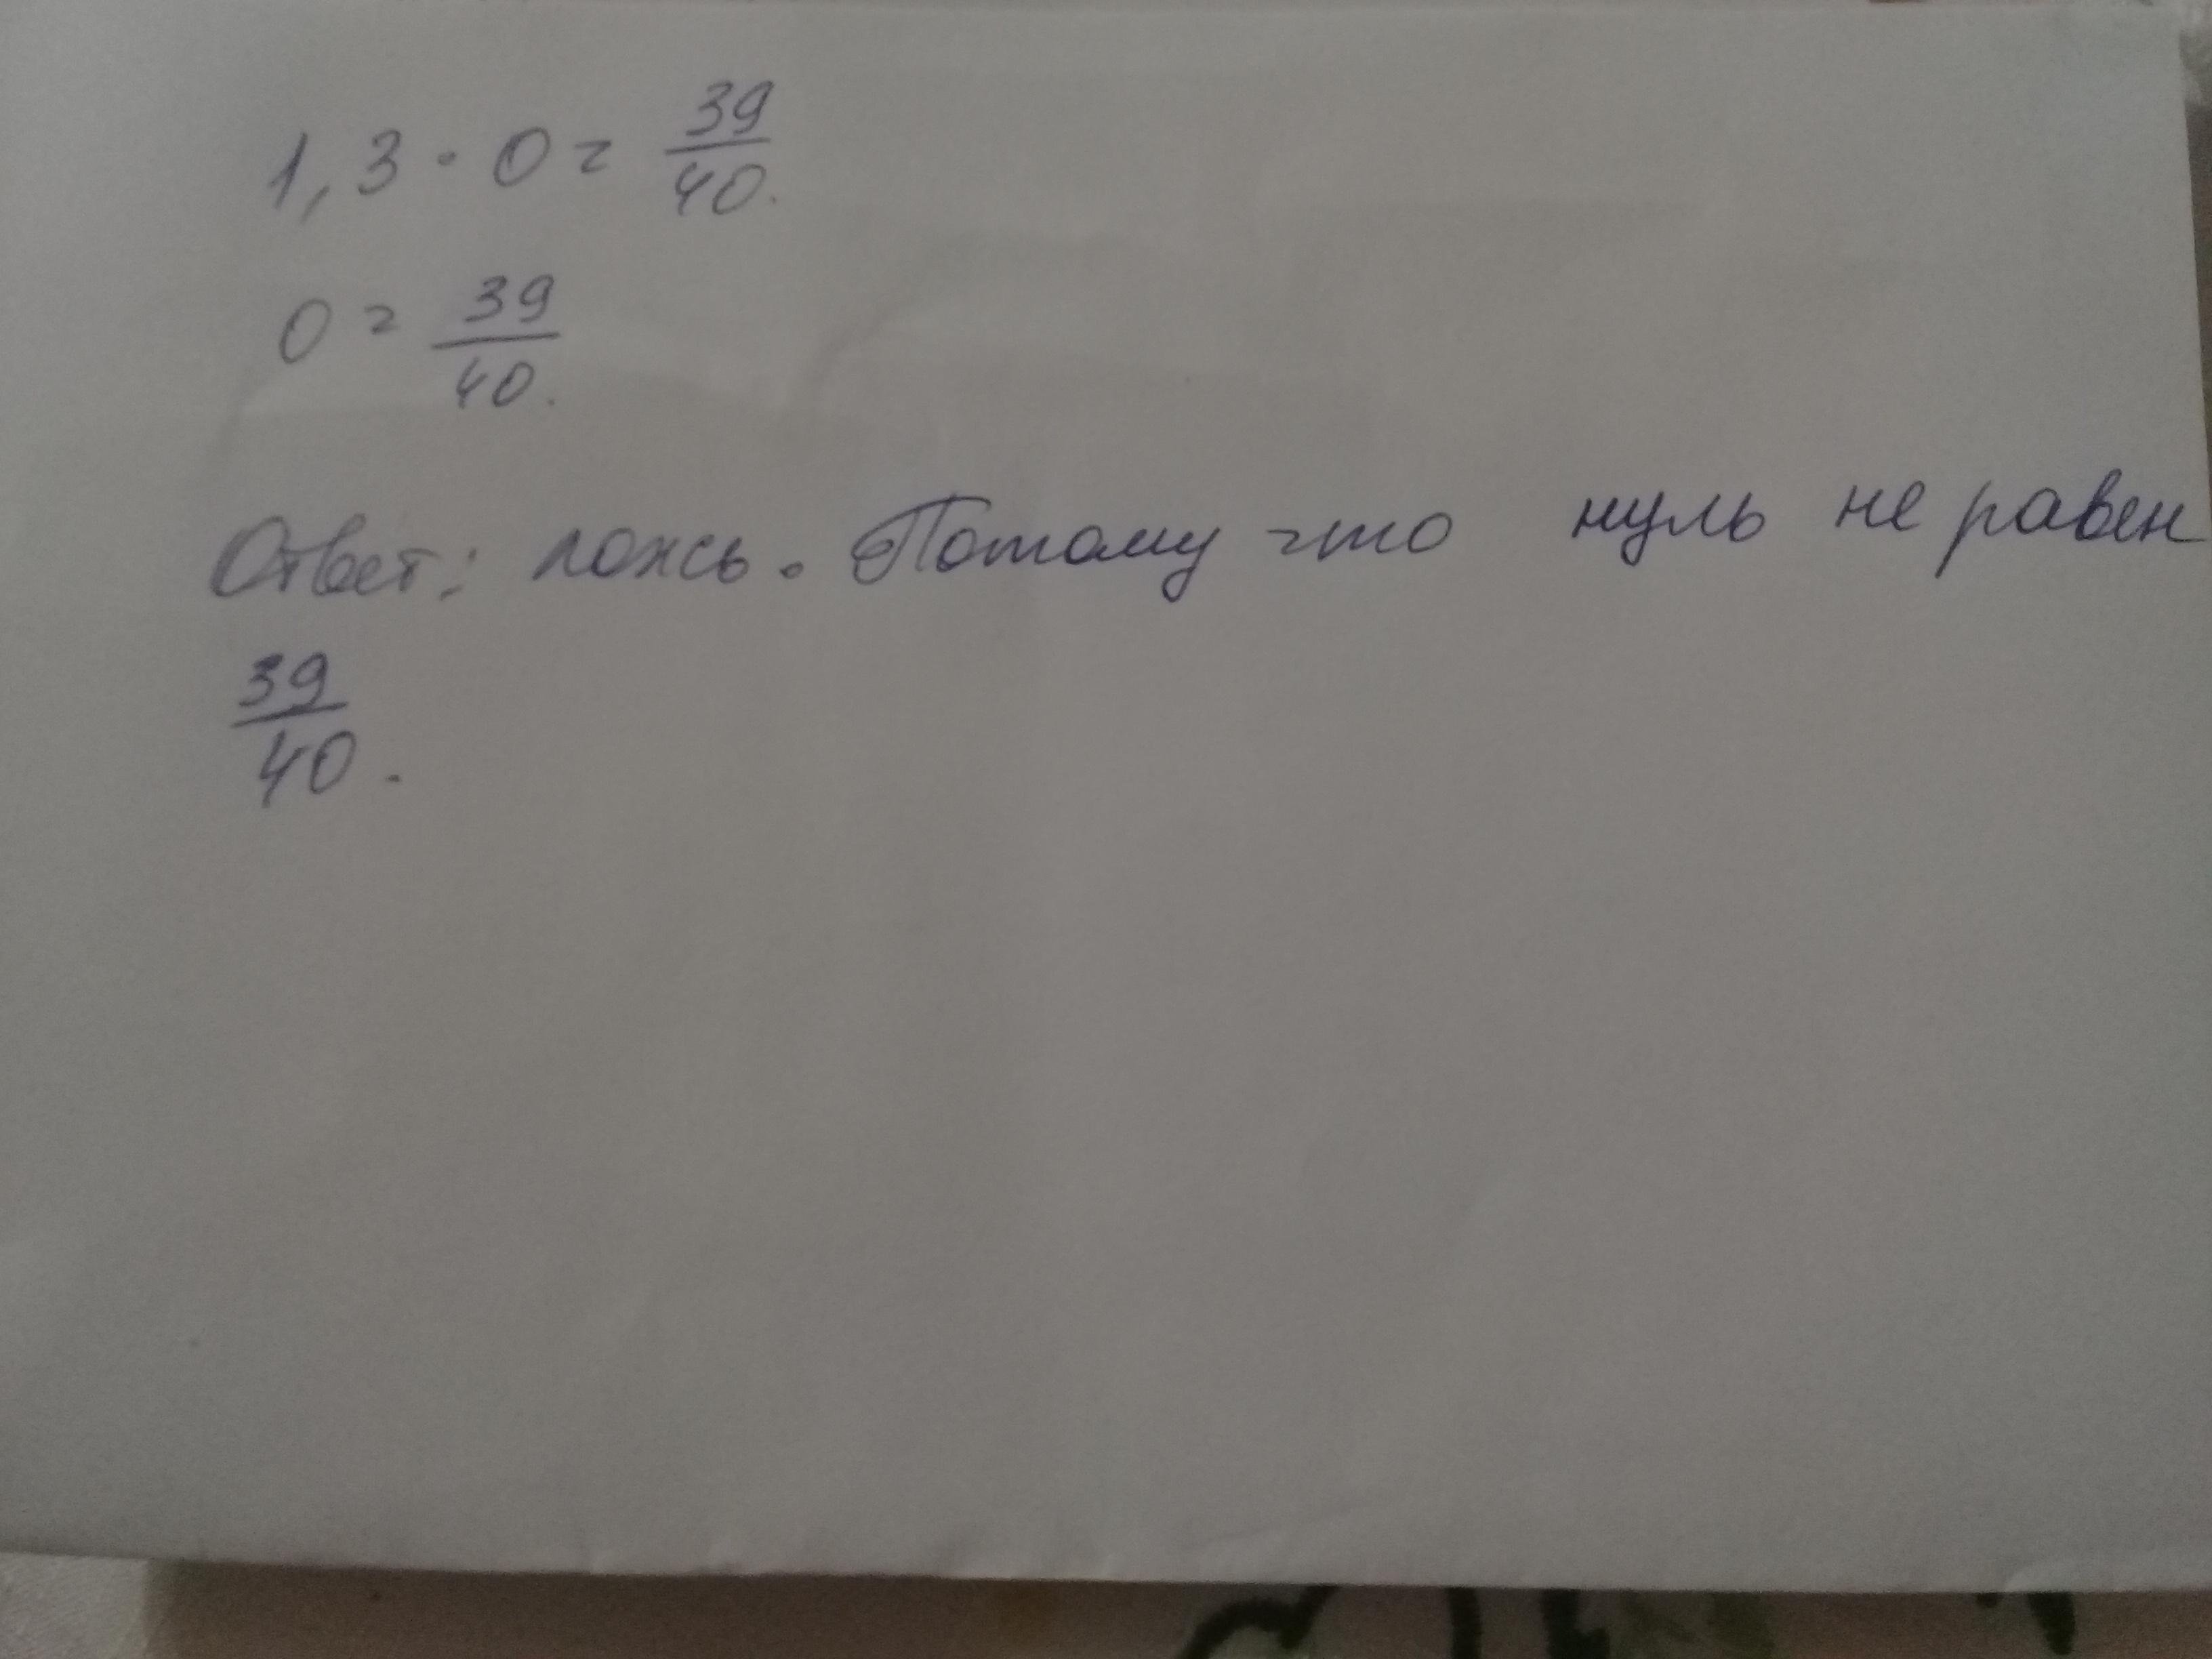 1,3 · 0 = 39/40.
0 = 39/40.
Ответ: ложь. Потому что нуль не равен
39/40.